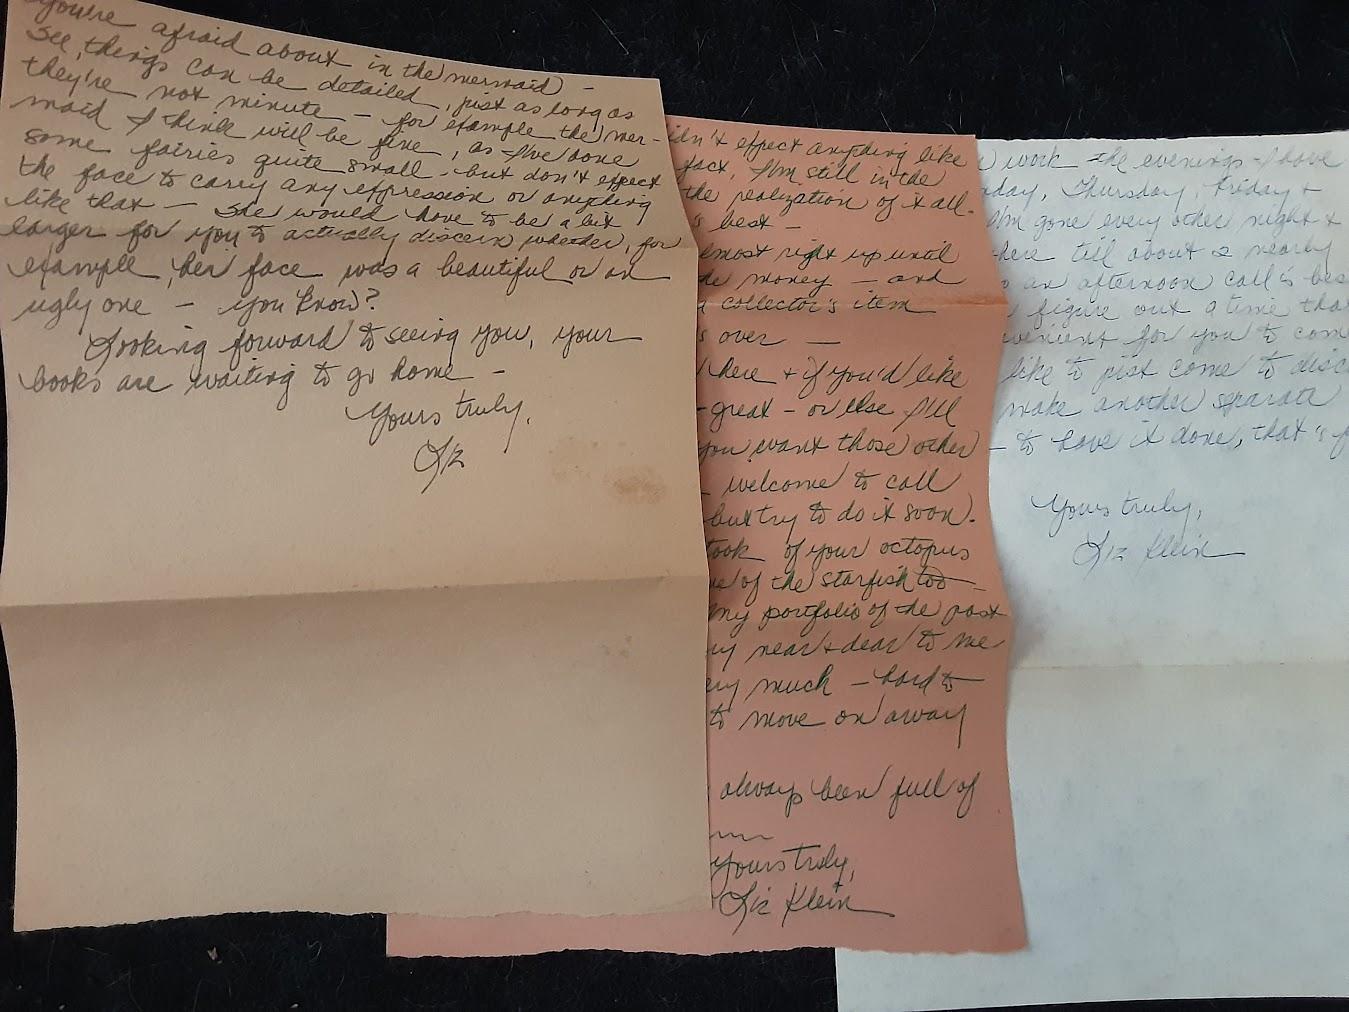 you're afraid about in the mermaid) -
see, things can be detailed, just as long as
they're not minute - for example the mer-
maid I think will be fine, as I've done
some fairies quite small - but don't expect
the face to carry any expression or anything
like that - she would have to be a bit
larger for you to actually discern whether, for
example, her face was a beautiful or an
ugly one - you know?
Looking forward to seeing you, your
books are waiting to go home -
Yours truly,
Liz
didn't expect anything like
fact, I'm still in the
the realization of it all.
's best -
almost right up until
the money - and
a collector's item
's over -
here + if you'd like
- great - or else I'll
you want those other
welcome to call
but try to do it soon.
took of your octopus
one of the starfish too -
my portfolio of the past
very near + dear to me
very much - hard to
to move on away
always been full of
Yours truly,
Liz Klein
work the evenings - I have
Thursday, Friday +
I'm gone every other night +
here till about 2 nearby
so an afternoon call is bes
figure out a time that
venient for you to com
like to just come to disc
make another separate
- to have it done, that's f
Yours truly,
Liz Klein